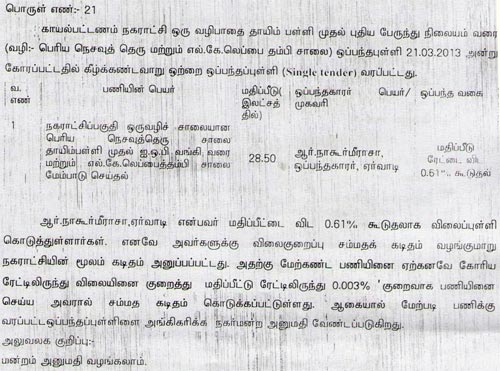 பொருள் எண்:- 21
காயல்பட்டணம் நகராட்சி ஒரு வழிபாதை தாயிம் பள்ளி முதல் புதிய பேருந்து நிலையம் வரை
(வழி:- பெரிய நெசவுத் தெரு மற்றும் எல்.கே.லெப்பை தம்பி சாலை) ஒப்பந்தபுள்ளி 21.03.2013 அன்று
கோரப்பட்டதில் கீழ்க்கண்டவாறு ஒற்றை ஒப்பந்தப்புள்ளி (Single tender) வரப்பட்டது.
வ. எண் பணியின் பெயர் மதிப்பீடு( இலட்சத் தில்) ஒப்பந்தகாரர் பெயர்/ முகவரி ஒப்பந்த வகை
1 நகராட்சிப்பகுதி ஒருவழிச் சாலையான
பெரிய நெசவுத்தெரு சாலை
தாயிம்பள்ளி முதல் ஐ.ஓ.பி.வங்கி வரை
மற்றும் எல்.கே.லெப்பைத்தம்பி சாலை
மேம்பாடு செய்தல்
28.50
ஆர்.நாகூர்மீராசா,
ஒப்பந்தகாரர், ஏர்வாடி
மதிப்பீடு
ரேட்டை விட
0.61% கூடுதல்
ஆர்.நாகூர்மீராசா,ஏர்வாடி என்பவர் மதிப்பீட்டை விட 0.61% கூடுதலாக விலைப்புள்ளி
கொடுத்துள்ளார்கள். எனவே அவர்களுக்கு விலைகுறைப்பு சம்மதக் கடிதம் வழங்குமாறு
நகராட்சியின் மூலம் கடிதம் அனுப்பப்பட்டது. அதற்கு மேற்கண்ட பணியினை ஏற்கனவே கோரிய
ரேட்டிலிருந்து விலையினை குறைத்து மதிப்பீட்டு ரேட்டிலிருந்து 0.003% குறைவாக பணியினை
செய்ய அவரால் சம்மத கடிதம் கொடுக்கப்பட்டுள்ளது. ஆகையால் மேற்படி பணிக்கு
வரப்பட்டஒப்பந்தப்புள்ளிளை அங்கிகரிக்க நகர்மன்ற அனுமதி வேண்டப்படுகிறது.
அலுவலக குறிப்பு:-
மன்றம் அனுமதி வழங்கலாம்.